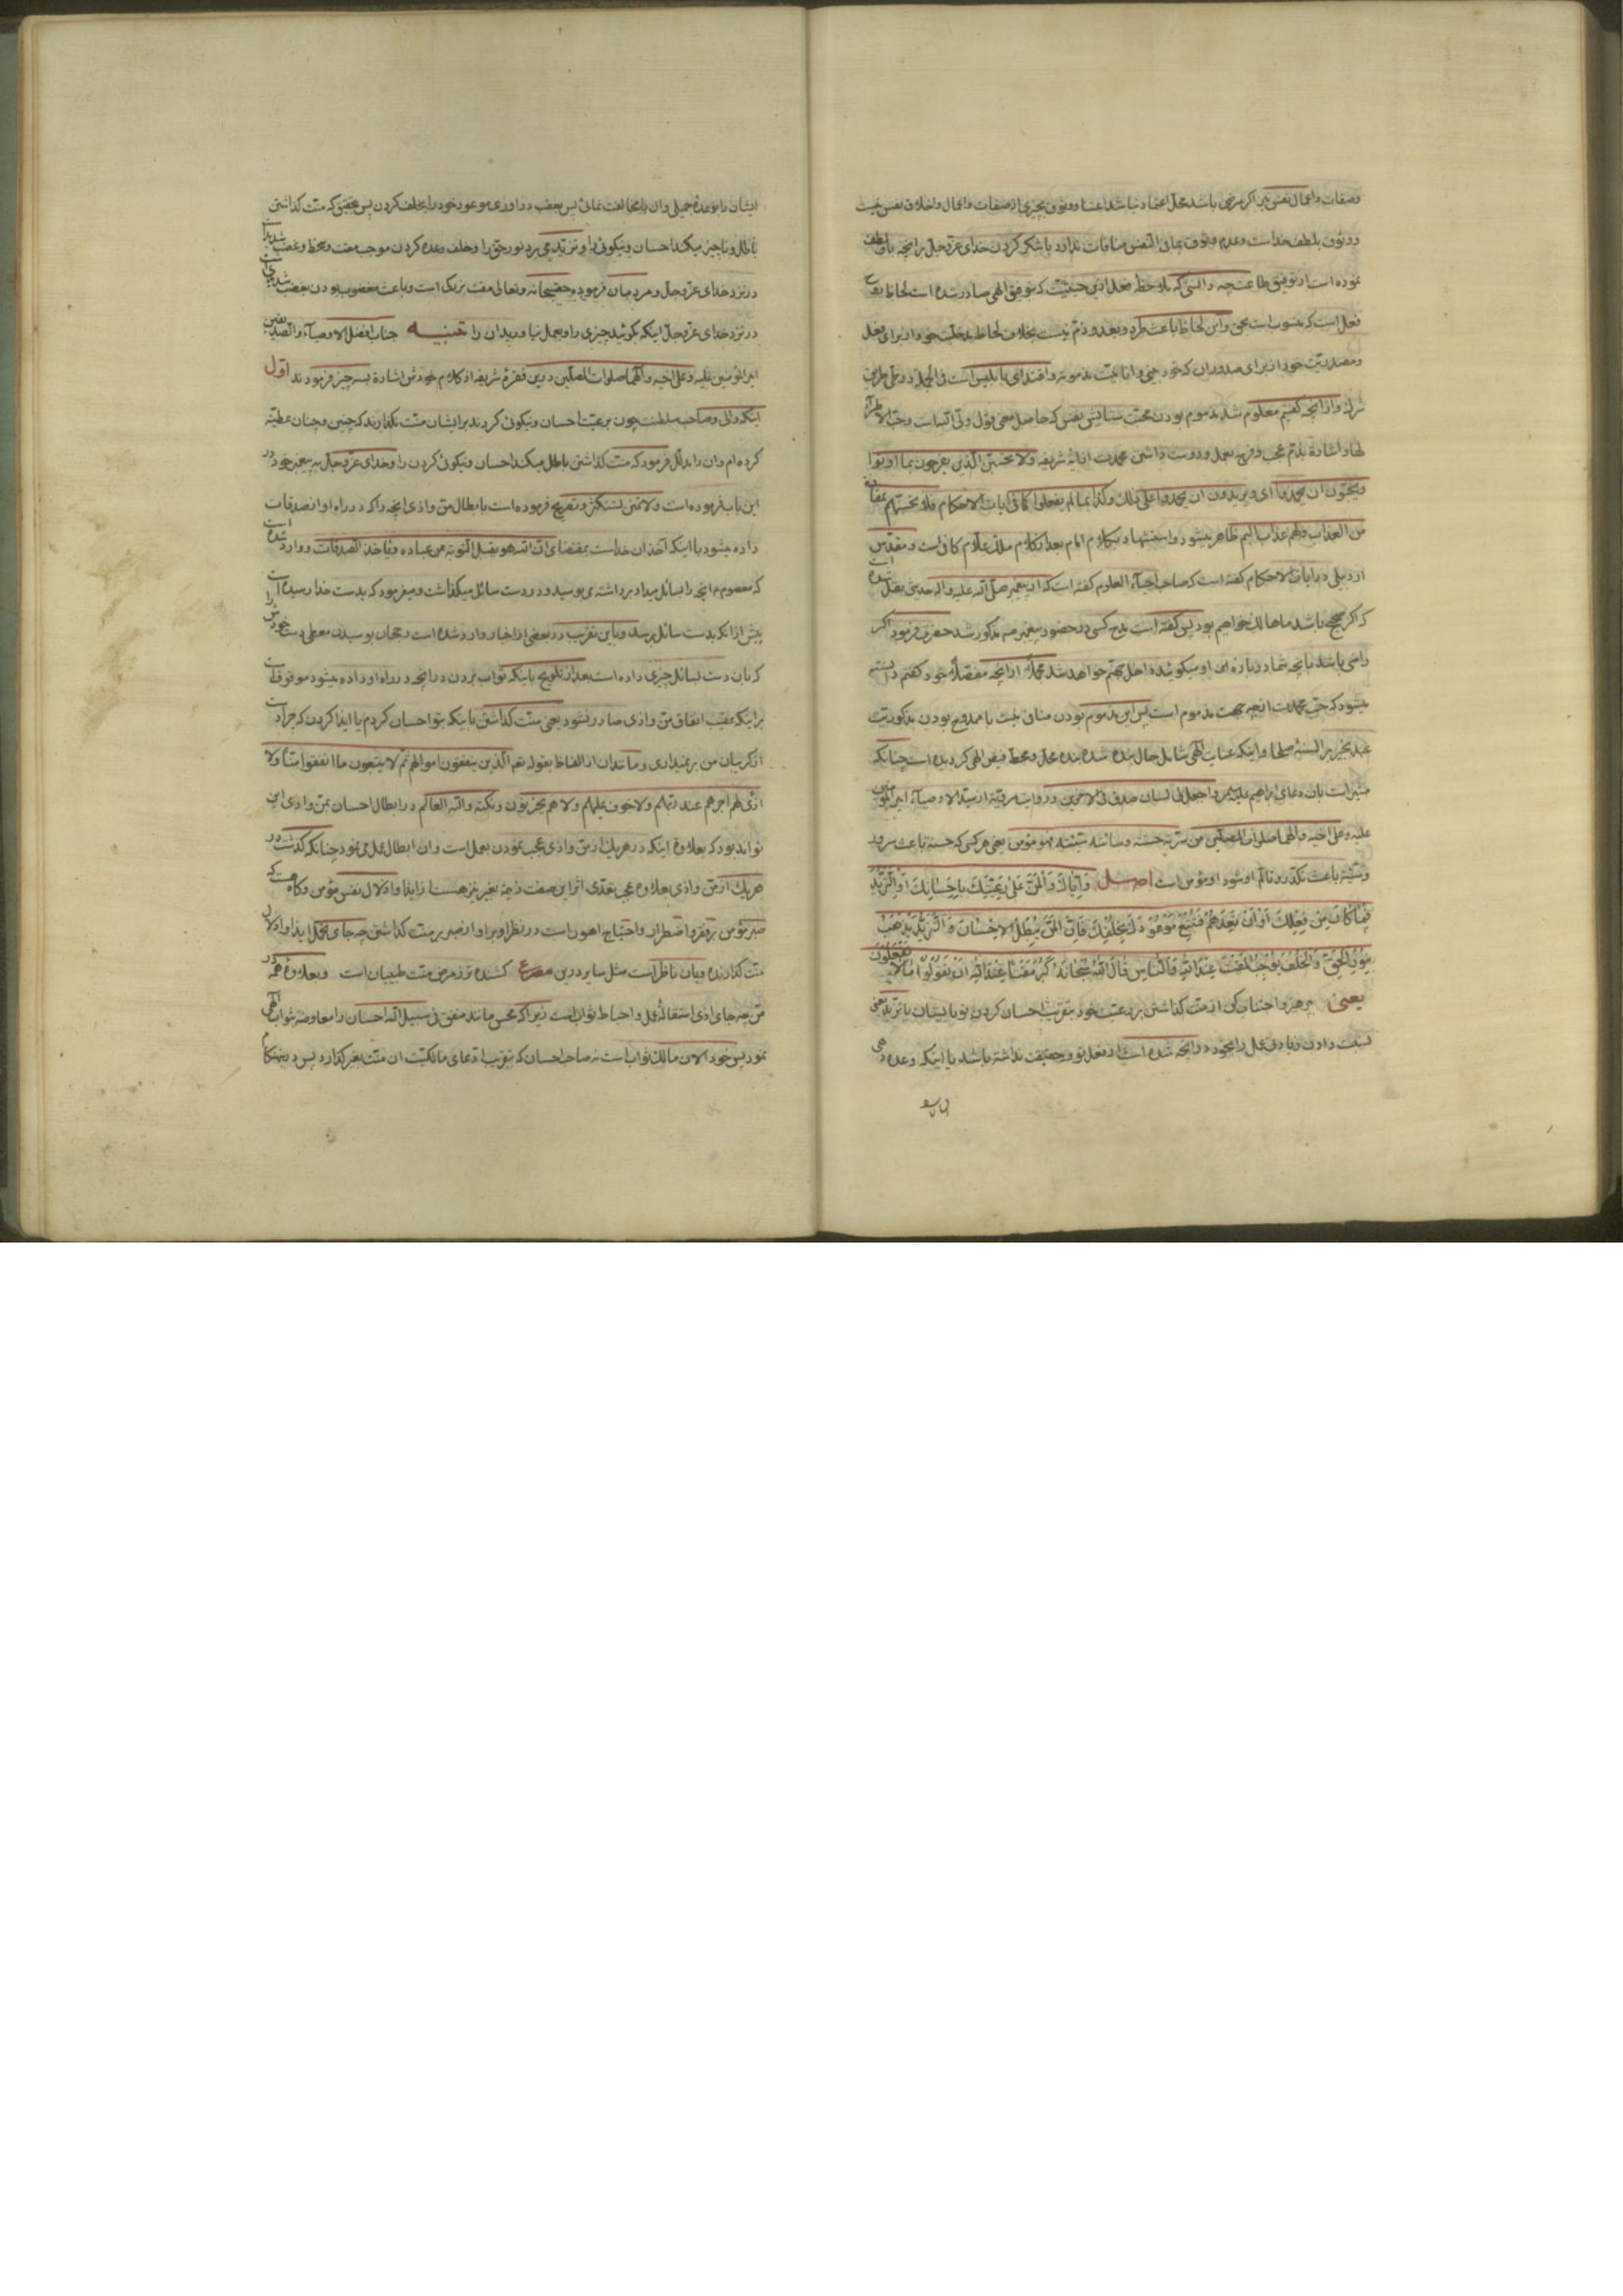 وصفات واعمال نفس نیز اکر مرضی باشد محل اعتماد نباشد اعتماد ووثوق بچیزی از صفات واعمال واخلاق نفس نیست
ووثوق بلطف خداست وعدم وثوق بمافی النفس منافات ندارد با شکر کردن خدای عزوجل برانچه باو لطف
نموده است از توفیق طاعت چه دانستی که ملاحظه فعل ازین حیثیت که بتوفیق الهی صادر شده است لحاظ
فعل است که منسوب است بحق واین لحاظ باعث طرد وبعد وذم نیست بخلاف لحاظ مدخلیت خود از برای فعل
ومصدریت خود از برای صدور ان که خود بینی وانانیت مذمومه واقتدای بابلیس است وبالجمله در طی طریق
شرک وازانچه کفتیم معلوم شد مذموم بودن محبت ستایش نفس که حاصل معنی قول وثانیست وحب الاطراء
لها واشارة بذم عجب وفرح بعمل ودوست داشتن محمدت از ایه شریفه ولا تحسبن الذین یفرحون بما اوتوا
ویحبون ان یحمدوا ای ویریدون ان یحمدوا علی ذلک وکذا بما لم یفعلوا کما فی ایات الاحکام فلا تحسبنهم بمفازة
من العذاب ولهم عذاب الیم ظاهر میشود واستشهاد بکلام امام بعد از کلام ملک علام کافی است ومقدس
اردبیلی در ایات الاحکام کفته است که صاحب احیاء العلوم کفته است که از پیغمبر صلی الله علیه واله حدیثی نقل شده است
که اکر صحیح باشد ماها هالک خواهیم بود پس کفته است مدح کسی در حضور پیغمبر ص مذکور شد حضرت فرمود اکر
راضی باشد بانچه شما در باره این او میکوئید داخل جهنم خواهد شد مجملا از انچه مفصلا خود کفتم دانسته
میشود که حب محمدت از چه جهت مذموم است پس این مذموم بودن منافی نیست با ممدوح بودن مذکوریت
عبد بخیر بر السنهٔ صلحا واینکه عنایت الهی شامل حال بنده شده بنده محل ومحط فیض الهی کردیده است چنانکه
مشیر است بان دعای ابراهیم علیه السلام واجعل لی لسان صدق فی الاخرین ودر روایت مرویة از سید الاوصیاء امیر المؤمنین
علیه وعلی اخیه والهما صلوات المصلین من سرته حسنة وسائته سیئته فهو مؤمن یعنی هر کس که حسنه باعث سرور
وسیئته باعث تکدر وتالم او شود او مؤمن است اصل وَاِیّاکَ وَالْمَنَّ عَلی رَعِیَّتِکَ بِاِحْسانِکَ اَوِ التَّزَیُّدَ
فیما کانَ مِنْ فِعْلِکَ اَوْ اَنْ تَعِدَهُمْ فَتُتْبِعَ مَوْعُودَکَ بِخُلْفِکَ فَاِنَّ الْمَنَّ یُبْطِلُ الْاِحْسانَ وَالتَّزَیُّدَ یَذْهَبُ
بِنُورِ الْحَقِّ وَالْخُلْفَ یُوجِبُ الْمَقْتَ عِنْدَ اللهِ وَالنّاسِ قالَ اللهُ سُبْحانَهُ کَبُرَ مَقْتاً عِنْدَ اللهِ اَنْ تَقُولُوا ما لا تَفْعَلُونَ
یعنی پرهیز واجتناب کن از منت کذاشتن بر رعیت خود بتقریب احسان کردن تو بایشان یا تزید یعنی
نسبت دادن زیادتی عمل را بخود در انچه شده است از فعل تو وحقیقت نداشته باشد یا اینکه وعده دهی
ایشان را
ایشان را بوعدهٔ جمیلی وان را مخالفت نمائی پس بعقب دراوری موعود خود را بخلف کردن پس بتحقیق که منت کذاشتن
باطل وناچیز میکند احسان ونیکوئی را وتزید می برد نور حق را وخلف وعده کردن موجب مقت وسخط وغضب شدید است
در نزد خدای عزوجل ومردمان فرموده حق سبحانه وتعالی مقت بزرک است وباعث مغضوب بودن بغضب شدیدی است
در نزد خدای عزوجل اینکه بکوئید چیزی را وبعمل نیاورید ان را تنبیه جناب افضل الاوصیاء والصدیقین
امیر المؤمنین علیه وعلی اخیه والهما صلوات المصلین درین فقرهٔ شریفه از کلام خودش اشارة بسه چیز فرمودند اول
اینکه والی وصاحب سلطنت چون برعیت احسان ونیکوئی کردند بر ایشان منت نکذارند که چنین وچنان عطیه
کرده ام وان را مدلل فرمود که منت کذاشتن باطل میکند احسان ونیکوئی کردن را وخدای عزوجل به پیغمبر خود در
این باب فرموده است ولا تمنن تستکثر وتصریح فرموده است بابطال من واذی انچه را که در راه او از صدقات
داده میشود با اینکه اخذ ان خداست بمقتضای ان الله هو یقبل التوبة من عباده ویاخذ الصدقات ووارد شده است
که معصوم ع انچه را بسائل میداد برداشته می بوسید ودر دست سائل میکذاشت ومیفرمود که بدست خدا رسیده است
پیش از انکه بدست سائل برسد وباین تقریب در بعضی از اخبار وارد شده است رجحان بوسیدن معطی دست خودش را
که بان دست بسائل چیزی داده است بعد از تلویح باینکه ثواب بردن در انچه در راه او داده میشود موقوف است
بر اینکه بعقب انفاق من واذی صادر نشود یعنی منت کذاشتن باینکه بتو احسان کردم یا ایذا کردن که چرا دست
از کریبان من بر نمیداری ومانند ان از الفاظ بقوله تعالی الذین ینفقون اموالهم ثم لا یتبعون ما انفقوا منا ولا
اذی لهم اجرهم عند ربهم ولا خوف علیهم ولا هم یحزنون ونکته والله العالم در ابطال احسان بمن واذی این
تواند بود که بعلاوهٔ اینکه در هر یک از من واذی عجب نمودن بعمل است وان ابطال عمل می نمود چنانکه کذشت در
هر یک از من واذی بعلاوه عجب تعدی اثر این صفت ذمیمه بغیر نیز هست از ایذا واذلال نفس مؤمن وکاه هست که
صبر مؤمن بر فقر واضطرار واحتیاج اهون است در نظر او بر او از صبر بر منت کذاشتن چه جای تحمل ایذا واذلال
منت کذارنده وبیان ناظر است مثل سایر درین مصرع کشنده تر ز مرض منت طبیبان است وبعلاوهٔ همه در
من چه جای اذی استقالهٔ عمل واحباط ثواب است زیرا که محسن مانند منفق فی سبیل الله احسان را معاوضه ثواب الهی
نمود پس خود الان مالک ثواب است نه صاحب احسان که بتقریب ادعای مالکیت ان منت بغیر کذارد پس در هنکام